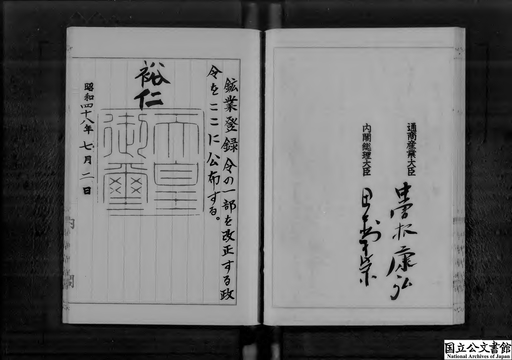 鉱業登録令の一部を改正する政
令をここに公布する。
裕仁
天皇
御璽
昭和四十八年七月二日
通商産業大臣 中曽根康弘
内閣総理大臣 田中角栄
国立公文書館
National Archives of Japan